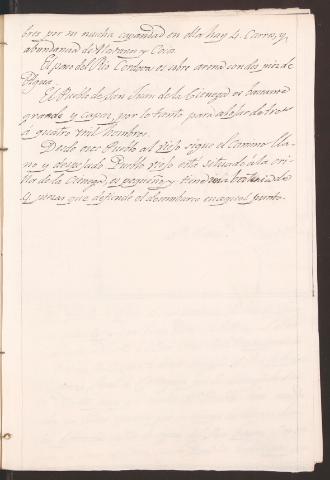 bres por su mucha capacidad en ella hay 4. Carros, y,
abundancia de Platanos y Coco.
El paso del Rio Cordova es sobre arena con dos pies de
Agua.
El Pueblo de San Juan de la Cienega es bastante
grande y Casas, por lo tanto para alojar de tres
á quatro mil hombres.
Desde este Pueblo al viejo sigue el Camino lla-
no y Pueblo viejo esta situado á la ori-
lla de la Cienega, es pequeño y tiene una bateria de
4. piezas que defiende el desembarco en aquel punto.